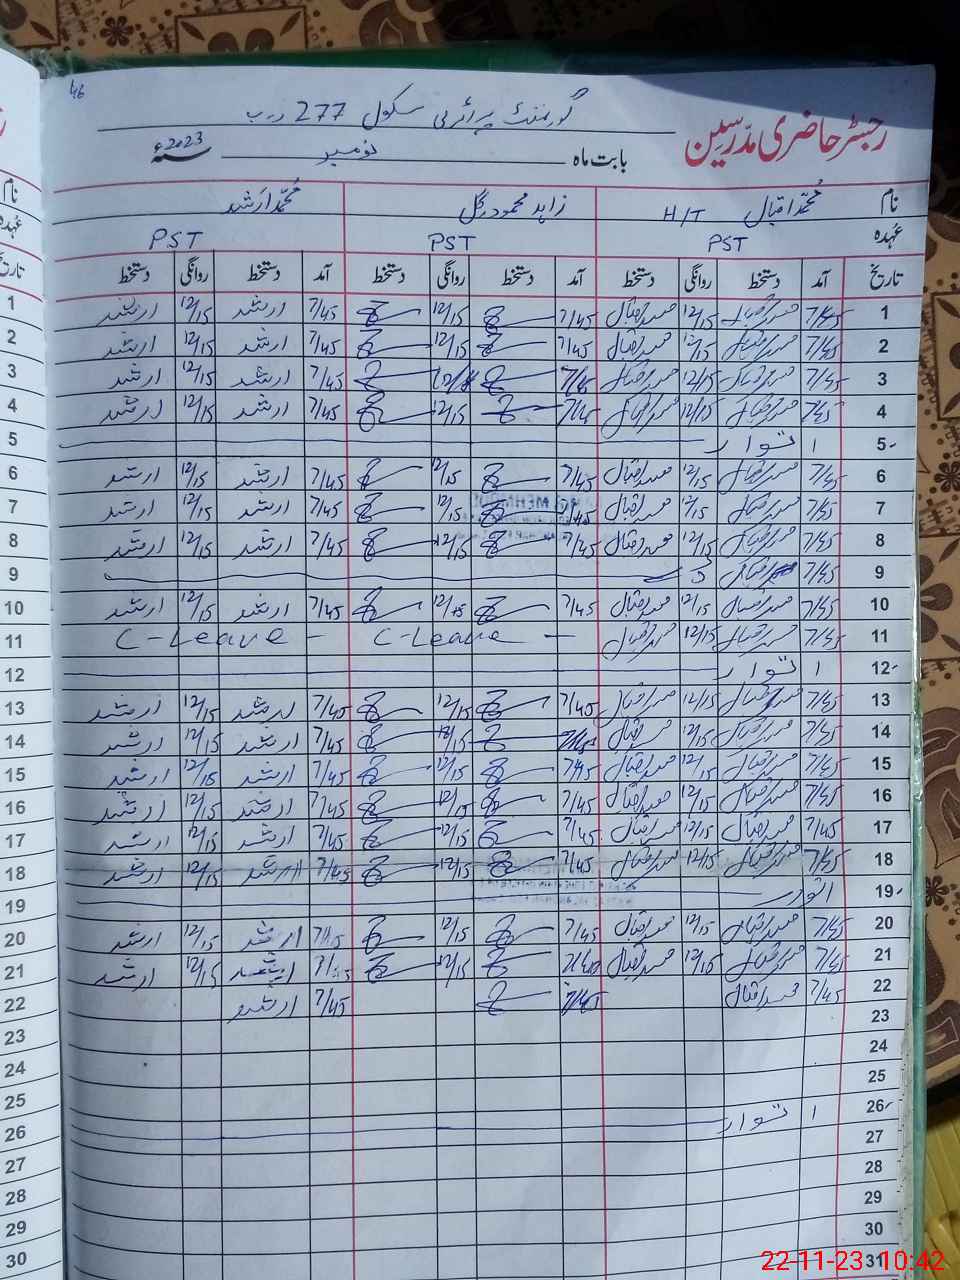 46
گورنمنٹ پرائمری سکول 277 ر۔ب
رجسٹر حاضری مدرسین
بابت ماہ نومبر سنہ 2023ء
نام محمد اقبال H/T زاہد محمود گل محمد ارشد
عہدہ PST PST PST
تاریخ آمد دستخط روانگی دستخط آمد دستخط روانگی دستخط آمد دستخط روانگی دستخط
1 7/45 محمد اقبال 12/15 محمد اقبال 7/45 12/15 7/45 ارشد 12/15 ارشد 1
2 7/45 محمد اقبال 12/15 محمد اقبال 7/45 12/15 7/45 ارشد 12/15 ارشد 2
3 7/45 محمد اقبال 12/15 محمد اقبال 7/45 7/45 ارشد 12/15 ارشد 3
4 7/45 محمد اقبال 12/15 محمد اقبال 7/45 12/15 7/45 ارشد 12/15 ارشد 4
5 اتوار 5
6 7/45 محمد اقبال 12/15 محمد اقبال 7/45 12/15 7/45 ارشد 12/15 ارشد 6
7 7/45 محمد اقبال 12/15 محمد اقبال 7/45 12/15 7/45 ارشد 12/15 ارشد 7
8 7/45 محمد اقبال 12/15 محمد اقبال 7/45 12/15 7/45 ارشد 12/15 ارشد 8
9 7/45 محمد اقبال 9
10 7/45 محمد اقبال 12/15 محمد اقبال 7/45 12/15 7/45 ارشد 12/15 ارشد 10
11 7/45 محمد اقبال 12/15 محمد اقبال C-Leave - C-Leave - 11
12 اتوار 12
13 7/45 محمد اقبال 12/15 محمد اقبال 7/45 12/15 7/45 ارشد 12/15 ارشد 13
14 7/45 محمد اقبال 12/15 محمد اقبال 7/45 12/15 7/45 ارشد 12/15 ارشد 14
15 7/45 محمد اقبال 12/15 محمد اقبال 7/45 12/15 7/45 ارشد 12/15 ارشد 15
16 7/45 محمد اقبال 12/15 محمد اقبال 7/45 12/15 7/45 ارشد 12/15 ارشد 16
17 7/45 محمد اقبال 12/15 محمد اقبال 7/45 12/15 7/45 ارشد 12/15 ارشد 17
18 7/45 محمد اقبال 12/15 محمد اقبال 7/45 12/15 7/45 ارشد 12/15 ارشد 18
19 اتوار 19
20 7/45 محمد اقبال 12/15 محمد اقبال 7/45 12/15 7/45 ارشد 12/15 ارشد 20
21 7/45 محمد اقبال 12/15 محمد اقبال 12/15 ارشد 12/15 ارشد 21
22 7/45 محمد اقبال 7/45 7/45 ارشد 22
23 23
24 24
25 25
26 اتوار 26
27 27
28 28
29 29
30 30
31
22-11-23 10:42